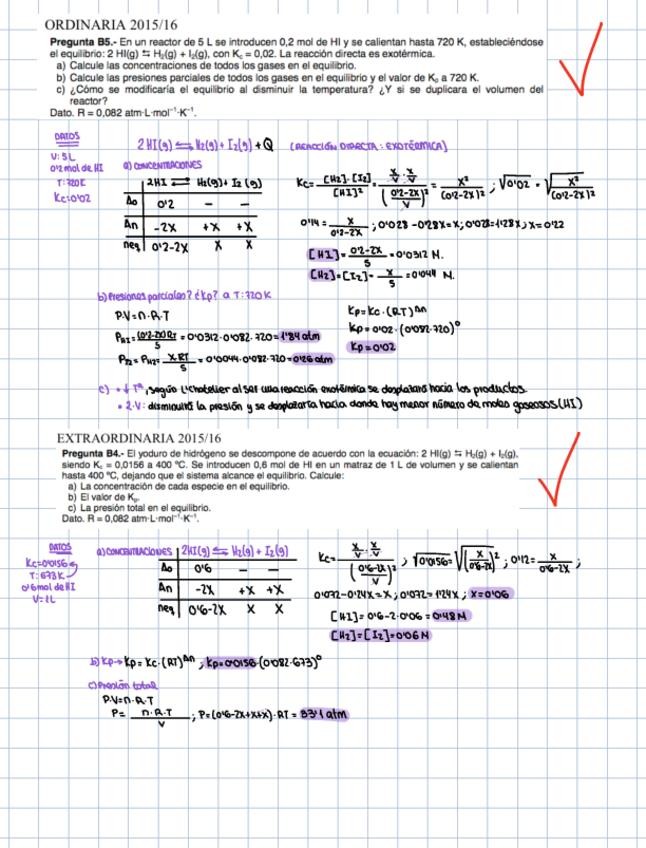 ORDINARIA 2015/16
Pregunta B5.- En un reactor de 5 L se introducen 0,2 mol de HI y se calientan hasta 720 K, estableciéndose
el equilibrio: 2 HI(g) ⇆ H₂(g) + I₂(g), con Kc = 0,02. La reacción directa es exotérmica.
a) Calcule las concentraciones de todos los gases en el equilibrio.
b) Calcule las presiones parciales de todos los gases en el equilibrio y el valor de Kp a 720 K.
c) ¿Cómo se modificaría el equilibrio al disminuir la temperatura? ¿Y si se duplicara el volumen del
reactor?
Dato. R = 0,082 atm·L·mol⁻¹·K⁻¹.
DATOS
V: 5L
0'2 mol de HI
T: 720K
Kc: 0'02
2HI(g) ⇆ H₂(g) + I₂(g) + Q (REACCIÓN DIRECTA: EXOTÉRMICA)
a) CONCENTRACIONES
2HI ⇄ H₂(g) + I₂(g)
Δo 0'2 – –
Δn -2X +X +X
neq 0'2-2X X X
Kc= [H₂]·[I₂] / [HI]² = X/V · X/V / (0'2-2X / V)² = X² / (0'2-2X)² ; √0'02 = √X² / (0'2-2X)²
0'14 = X / 0'2-2X ; 0'028 - 0'28X = X ; 0'028 = 1'28X ; X = 0'22
[HI] = 0'2-2X / 5 = 0'0312 M.
[H₂] = [I₂] = X / 5 = 0'0044 M.
b) Presiones parciales? ¿Kp? a T: 720K
P·V = n·R·T
P_HI = (0'2-2X)RT / 5 = 0'0312·0'082·720 = 1'84 atm
P_I₂ = P_H₂ = X·RT / 5 = 0'0044·0'082·720 = 0'26 atm
Kp = Kc·(RT)^Δn
Kp = 0'02·(0'082·720)⁰
Kp = 0'02
c) • ↓ Tª, según L'Chatelier al ser una reacción exotérmica se desplazará hacia los productos.
• 2·V: disminuirá la presión y se desplazaría hacia donde hay menor número de moles gaseosos (HI)
EXTRAORDINARIA 2015/16
Pregunta B4.- El yoduro de hidrógeno se descompone de acuerdo con la ecuación: 2 HI(g) ⇆ H₂(g) + I₂(g),
siendo Kc = 0,0156 a 400 ºC. Se introducen 0,6 mol de HI en un matraz de 1 L de volumen y se calientan
hasta 400 ºC, dejando que el sistema alcance el equilibrio. Calcule:
a) La concentración de cada especie en el equilibrio.
b) El valor de Kp.
c) La presión total en el equilibrio.
Dato. R = 0,082 atm·L·mol⁻¹·K⁻¹.
DATOS
Kc=0'0156
T: 673K
0'6 mol de HI
V=1L
a) CONCENTRACIONES 2HI(g) ⇆ H₂(g) + I₂(g)
Δo 0'6 – –
Δn -2X +X +X
neq 0'6-2X X X
Kc= X/V · X/V / (0'6-2X / V)² ; √0'0156 = √(X / 0'6-2X)² ; 0'12 = X / 0'6-2X ;
0'072 - 0'24X = X ; 0'072 = 1'24X ; X = 0'06
[HI] = 0'6 - 2·0'06 = 0'48 M
[H₂] = [I₂] = 0'06 M
b) Kp → Kp = Kc·(RT)^Δn ; Kp = 0'0156·(0'082·673)⁰
c) Presión total
P·V = n·R·T
P = n·R·T / V ; P = (0'6-2X+X+X)·RT = 33'1 atm